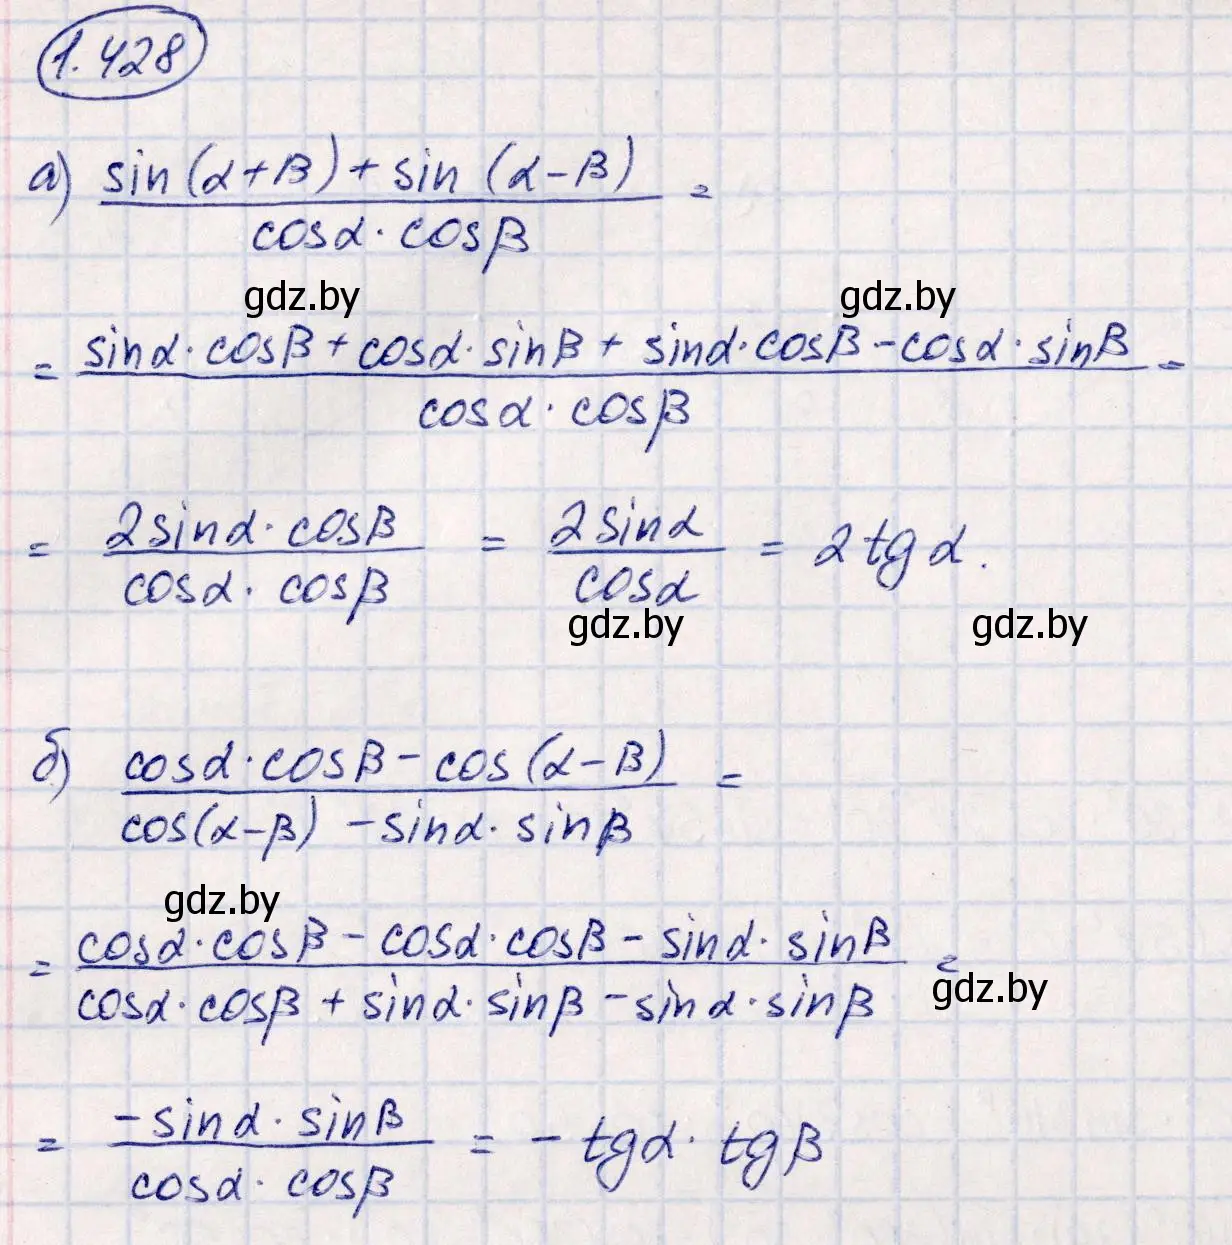 1.428
а) (sin(α+β) + sin(α-β)) / (cosα · cosβ) =
gdz.by gdz.by
= (sinα · cosβ + cosα · sinβ + sinα · cosβ - cosα · sinβ) / (cosα · cosβ) =
= (2sinα · cosβ) / (cosα · cosβ) = (2sinα) / (cosα) = 2tgα.
gdz.by gdz.by
б) (cosα · cosβ - cos(α-β)) / (cos(α-β) - sinα · sinβ) =
gdz.by
= (cosα · cosβ - cosα · cosβ - sinα · sinβ) / (cosα · cosβ + sinα · sinβ - sinα · sinβ) =
gdz.by
= (-sinα · sinβ) / (cosα · cosβ) = - tgα · tgβ